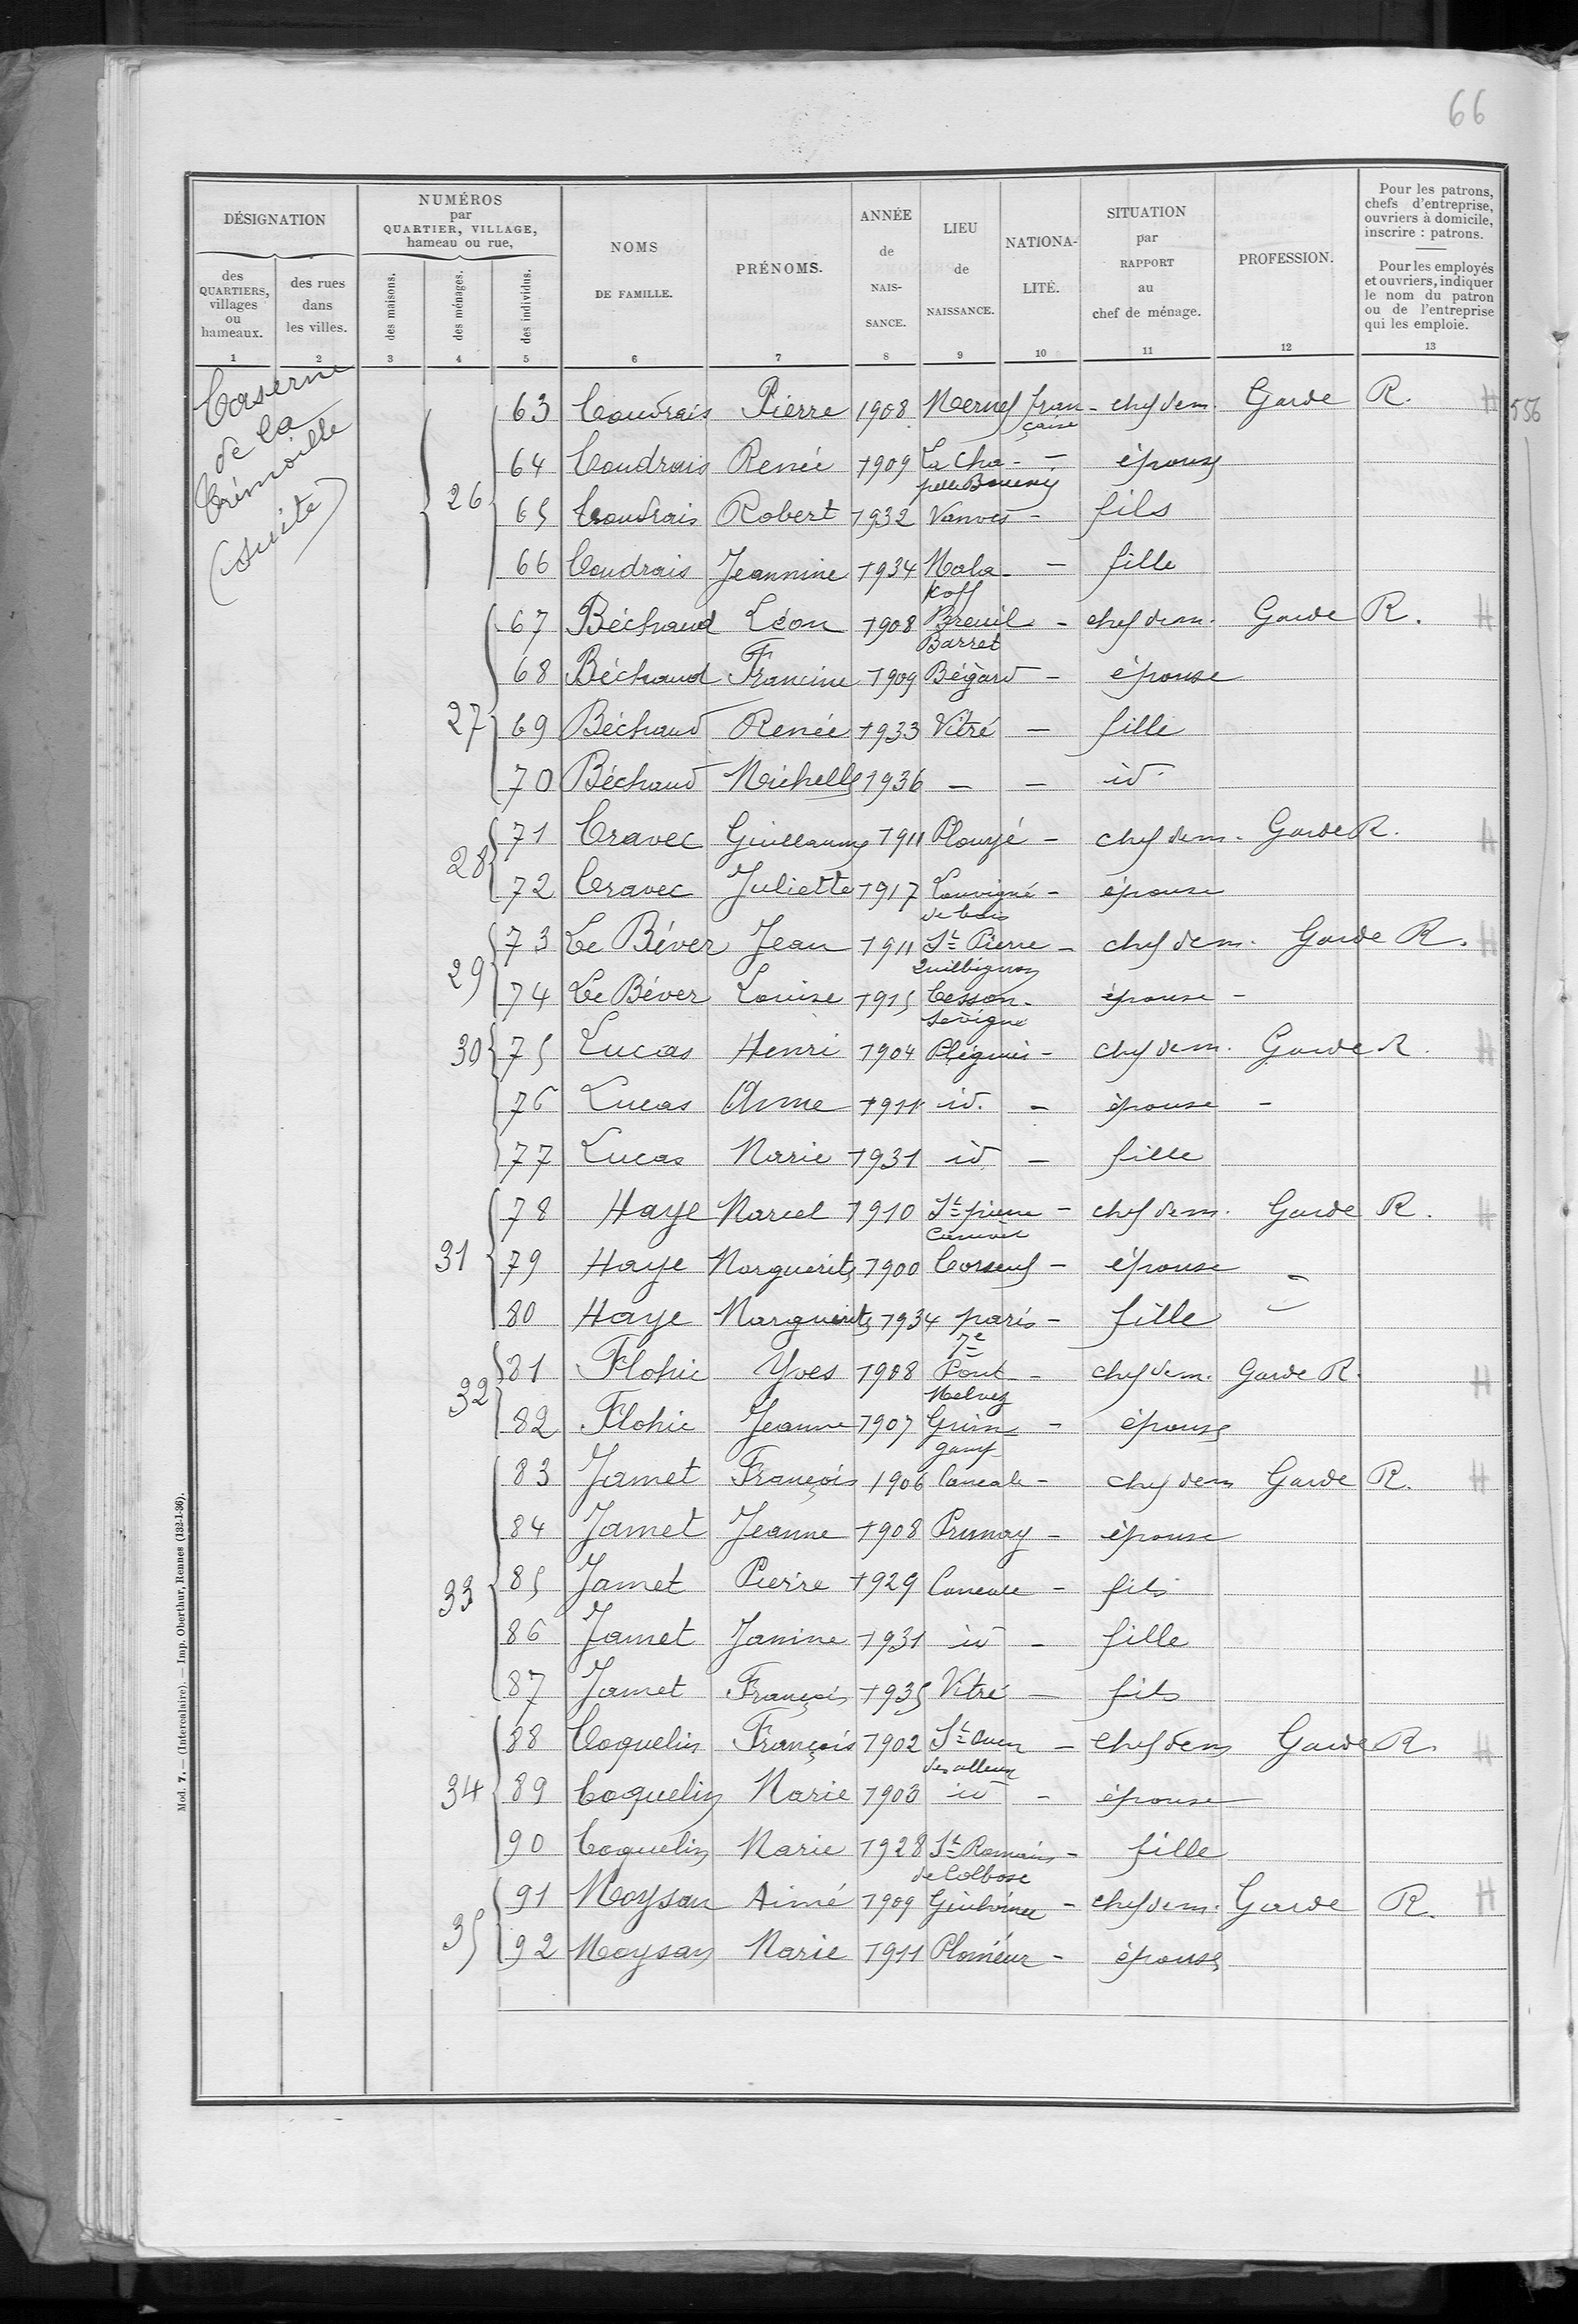 66
DÉSIGNATION
NUMÉROS
par
QUARTIER, VILLAGE,
hameau ou rue,
NOMS
DE FAMILLE.
PRÉNOMS.
ANNÉE
de
NAIS-
SANCE.
LIEU
de
NAISSANCE.
NATIONA-
LITÉ.
SITUATION
par
RAPPORT
au
chef de ménage.
PROFESSION.
Pour les patrons,
chefs d'entreprise,
ouvriers à domicile,
inscrire : patrons.
Pour les employés
et ouvriers, indiquer
le nom du patron
ou de l'entreprise
qui les emploie.
des
QUARTIERS,
villages
ou
hameaux.
des rues
dans
les villes.
des maisons.
des ménages.
des individus.
1 2 3 4 5 6 7 8 9 10 11 12 13
Caserne
de la
Trémoille
(suite)
26
63 Coudrais Pierre 1908 Mernel fran- chef de m. Garde R. # 556
çaise
64 Coudrais Renée 1909 La Cha- - épouse
pelle Bouexic
65 Coudrais Robert 1932 Vanves - fils
66 Coudrais Jeannine 1934 Mala- - fille
koff
27
67 Béchaud Léon 1908 Breuil - chef de m. Garde R. #
Barret
68 Béchaud Francine 1909 Bégard - épouse
69 Béchaud Renée 1933 Vitré - fille
70 Béchaud Michelle 1936 - - id.
28
71 Cravec Guillaume 1911 Plouyé - chef de m. Garde R. #
72 Cravec Juliette 1917 Louvigné - épouse
de bais
29
73 Le Béver Jean 1911 St Pierre - chef de m. Garde R. #
Quilbignon
74 Le Béver Louise 1915 Cesson- épouse -
Sévigné
30
75 Lucas Henri 1904 Pléguien - chef de m. Garde R. #
76 Lucas Anne 1911 id. - épouse -
77 Lucas Marie 1931 id - fille
31
78 Haye Marcel 1910 St pierre - chef de m. Garde R. #
79 Haye Marguerite 1900 Corseul - épouse -
80 Haye Marguerite 1934 paris - fille -
7e
32
81 Flohic Yves 1908 Pont - chef de m. Garde R. #
Melvez
82 Flohic Jeanne 1907 Guin - épouse
gamp
33
83 Jamet François 1906 Cancale - chef de m Garde R. #
84 Jamet Jeanne 1908 Prunay - épouse
85 Jamet Pierre 1929 Cancale - fils
86 Jamet Janine 1931 id - fille
87 Jamet François 1935 Vitré - fils
34
88 Coquelin François 1902 St Ouen - chef de m Garde R. #
des alleux
89 Coquelin Marie 1903 id - épouse
90 Coquelin Marie 1928 St Romain - fille
de Colbosc
35
91 Moysan Aimé 1909 Guilvinec - chef de m. Garde R. #
92 Moysan Marie 1911 Ploméur - épouse
Mod. 7. — (Intercalaire). — Imp. Oberthur, Rennes (132-1-36).